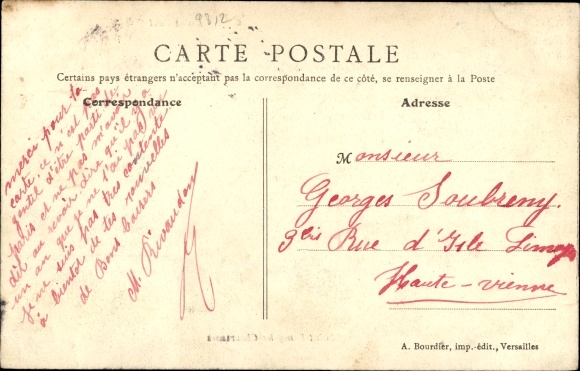 9812
CARTE POSTALE
Certains pays étrangers n'acceptant pas la correspondance de ce côté, se renseigner à la Poste
Correspondance
merci pour ta
carte, ce n'est pas
gentil d'être parti de
paris et ne pas m'avoir
dit au revoir dire qu'il y a
un an que je ne t'ai pas vu
je ne suis pas très contente
à bientot de tes nouvelles
de Bons baisers
M. Rivaudon
Adresse
Monsieur
Georges Soubreny.
3bis Rue d'Isle Limoges
Haute-vienne
A. Bourdier, imp.-édit., Versailles